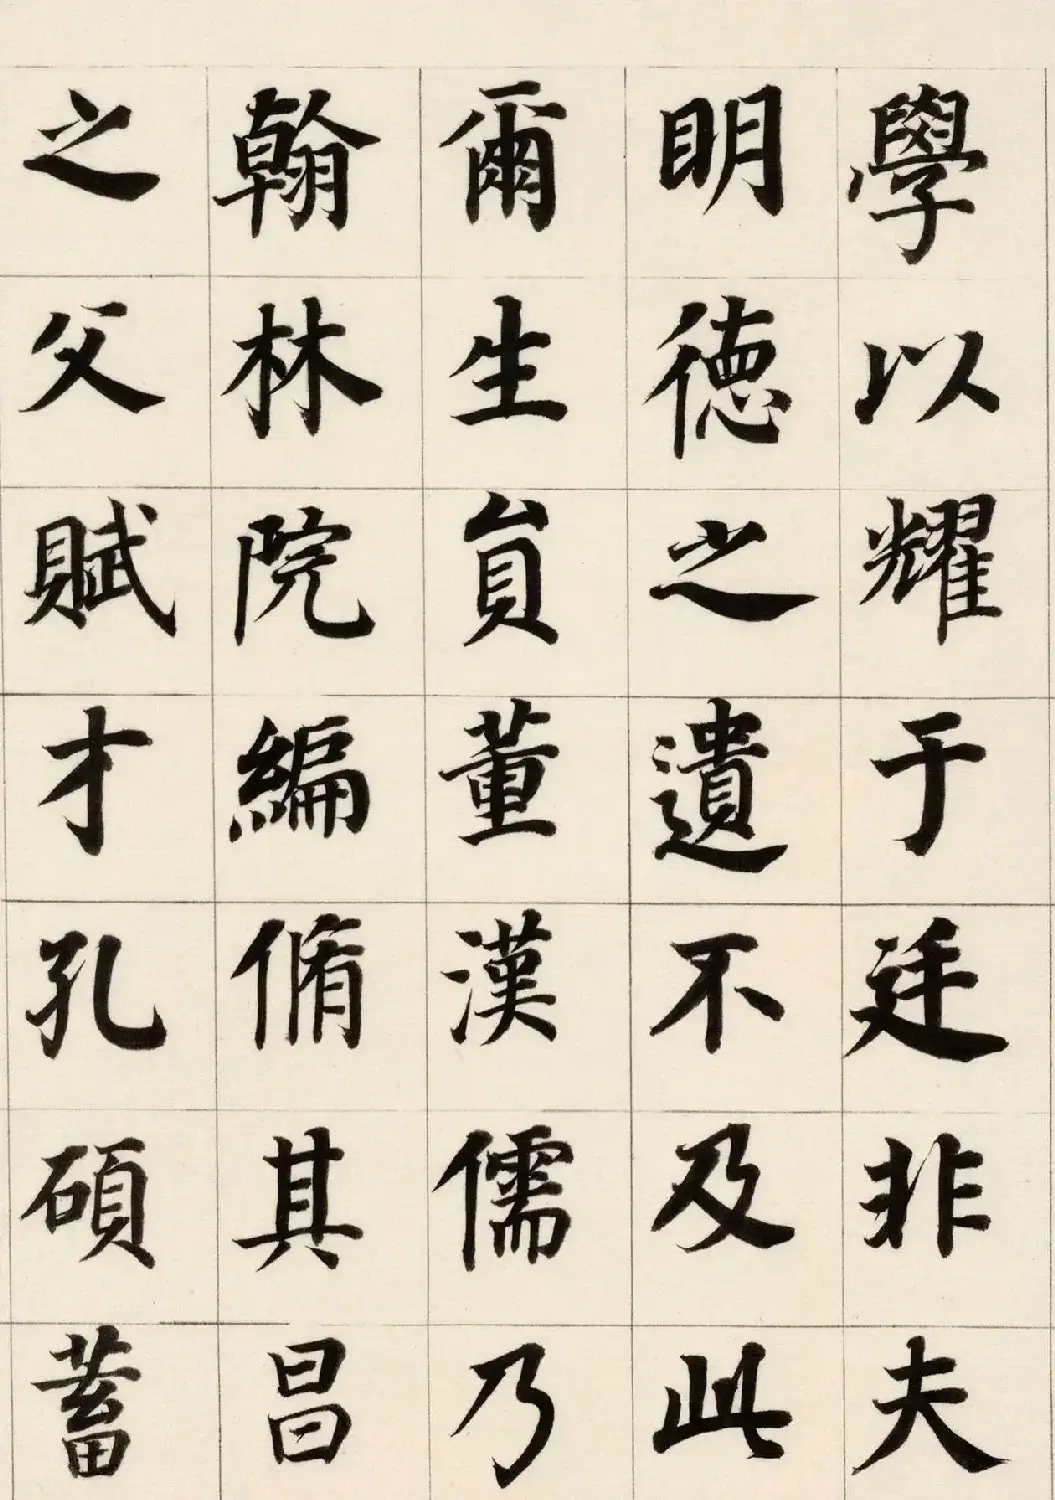 學以耀于廷非夫
明德之遺不及此
爾生員董漢儒乃
翰林院編脩其昌
之父賦才孔碩蓄